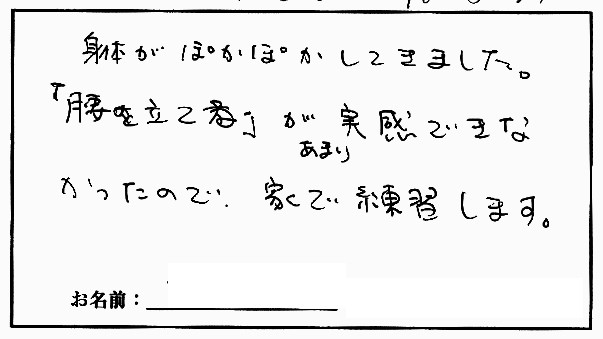 身体がぽかぽかしてきました。
「腰を立て」が実感できな
あまり
かったので、家で練習します。
お名前：